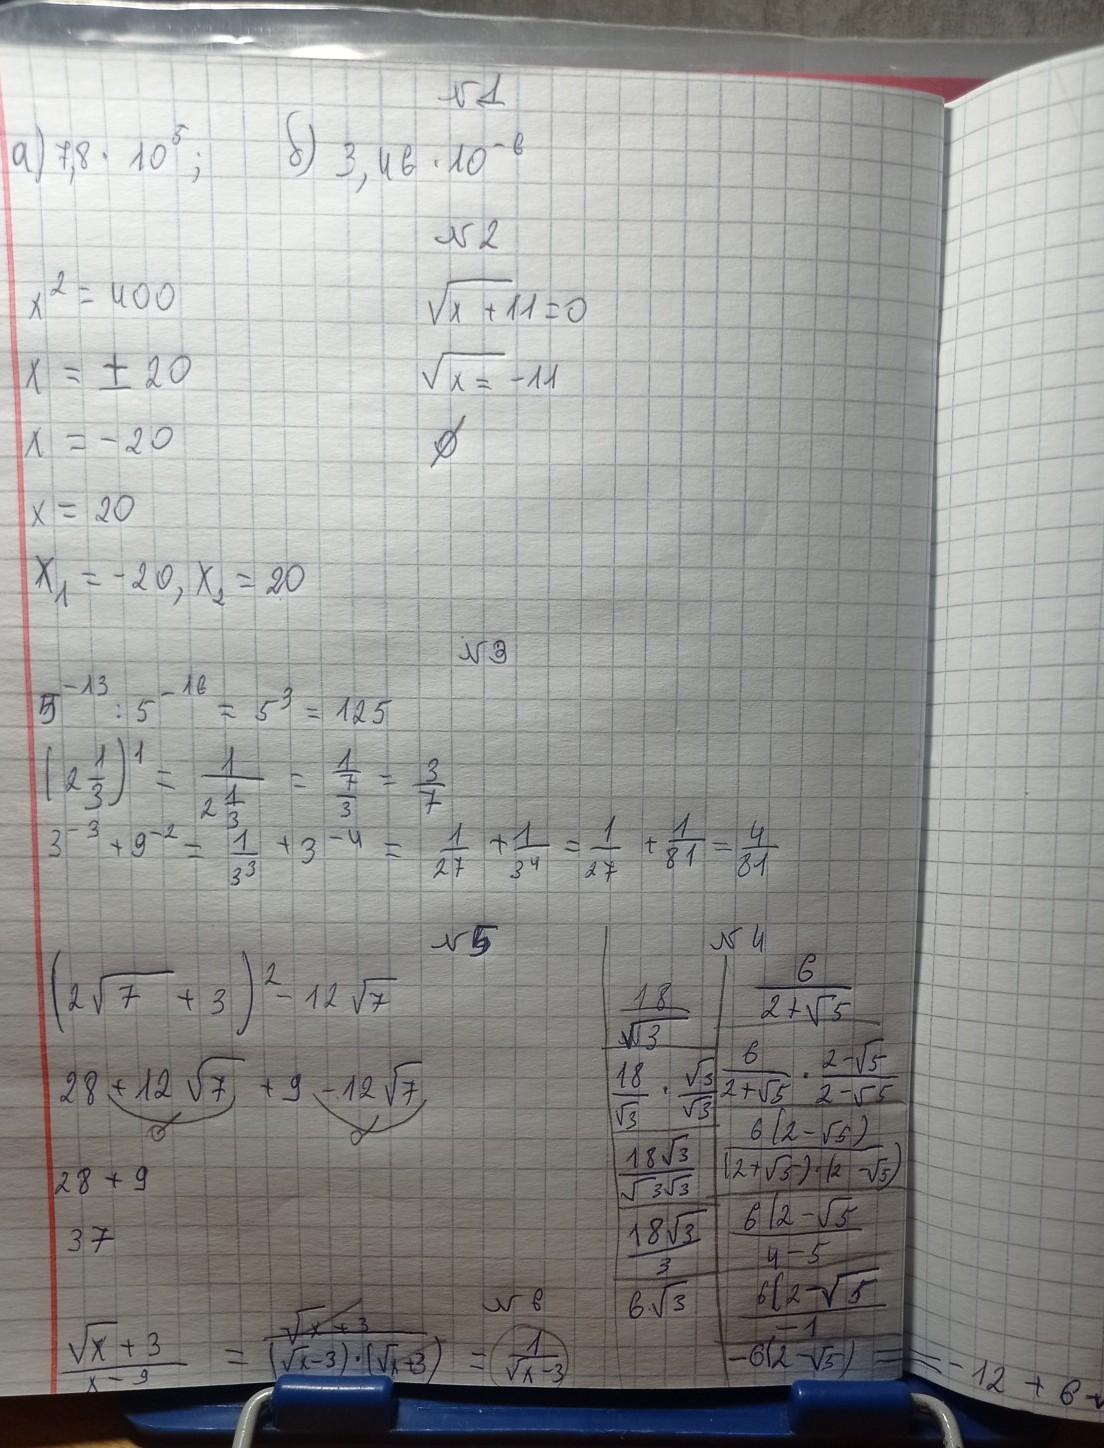 №1
а) 7,8 · 10⁵; б) 3,46 · 10⁻⁶
№2
x² = 400
x = ± 20
x = -20
x = 20
x₁ = -20, x₂ = 20
√x + 11 = 0
√x = -11
∅
№3
5⁻¹³ : 5⁻¹⁶ = 5³ = 125
(2 1/3)¹ = 1/(2 1/3) = 1/(7/3) = 3/7
3⁻³ + 9⁻² = 1/3³ + 3⁻⁴ = 1/27 + 1/3⁴ = 1/27 + 1/81 = 4/81
№5
(2√7 + 3)² - 12√7
28 + 12√7 + 9 - 12√7
28 + 9
37
№4
18/√3
18/√3 · √3/√3
18√3/√3√3
18√3/3
6√3
6/(2+√5)
6/(2+√5) · (2-√5)/(2-√5)
6(2-√5)/(2+√5)·(2-√5)
6(2-√5/4-5
6(2-√5/-1
-6(2-√5) = = -12 + 6√
№6
(√x + 3)/(x - 9) = (√x + 3)/(√x-3)·(√x+3) = 1/(√x-3)